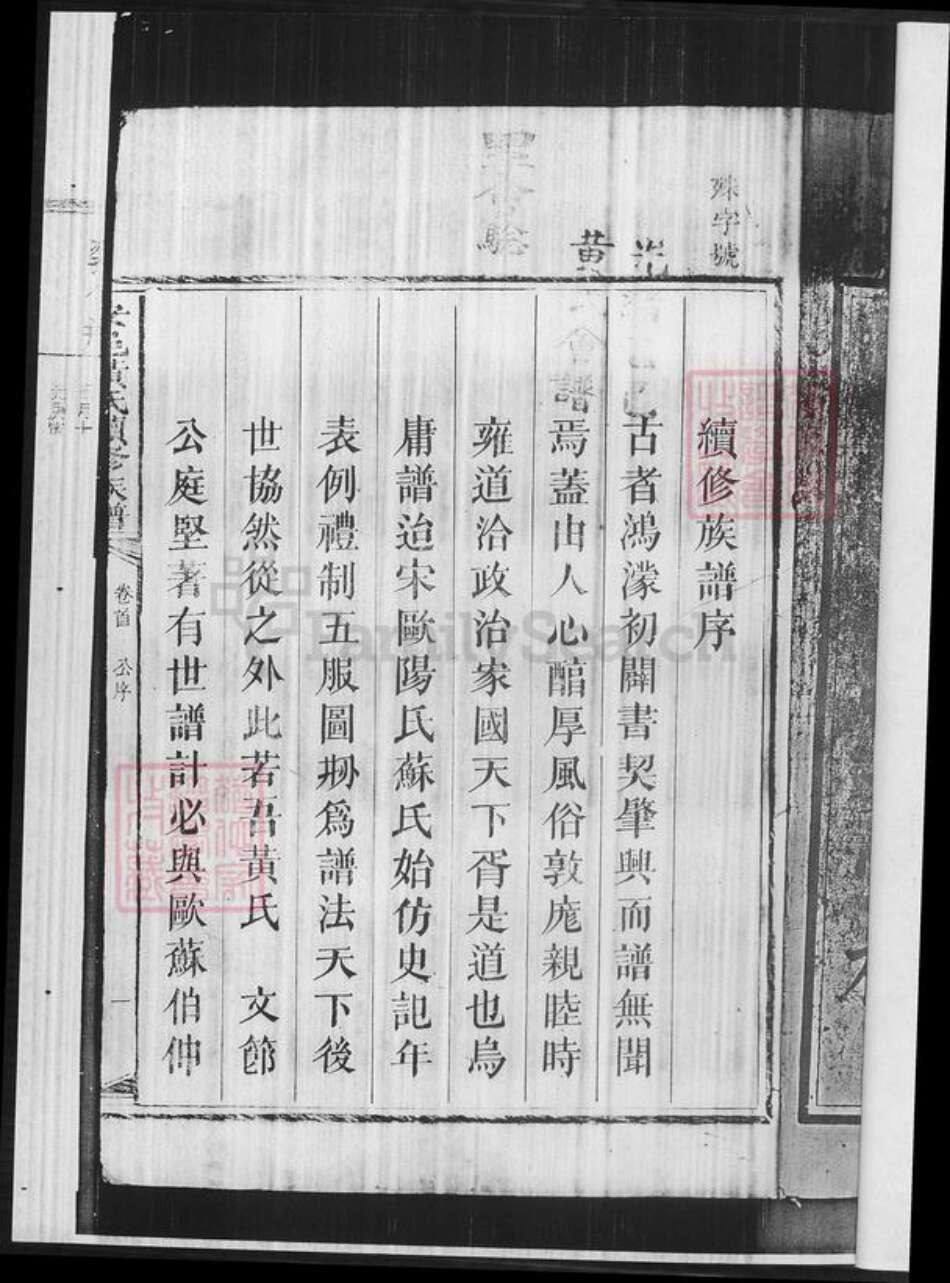 殊字號
續修族譜序
古者鴻濛初闢書契肇興而譜無聞
焉蓋由人心醕厚風俗敦龐親睦時
雍道洽政治家國天下胥是道也烏
庸譜迨宋歐陽氏蘇氏始仿史記年
表例禮制五服圖刱為譜法天下後
世協然從之外此若吾黃氏　文節
公庭堅著有世譜計必與歐蘇伯仲
黃氏續修族譜
卷首　公序
一
FamilySearch